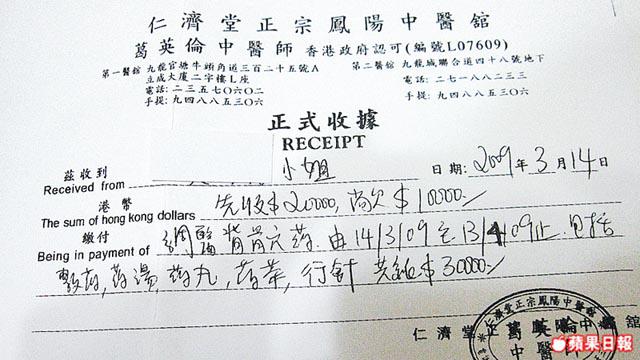 仁濟堂正宗鳳陽中醫舘
葛英倫中醫師 香港政府認可(編號L07609)
第一醫舘 九龍官塘牛頭角道三百二十五號A
立成大廈二字樓L座
電話: 二三五七〇六〇二
手提: 九四八八五三〇六
第二醫舘: 九龍城聯合道四十八號地下
電話: 二七一八八二三三
手提: 九四八八五三〇六
正式收據
RECEIPT
茲收到
Received from 小姐 日期: 2009年3月14日
港幣
The sum of hong kong dollars 先收$20000, 尚欠$10000/
繳付
Being in payment of 背骨 药. 由14/3/09至13/4/09止. 包括
药, 药湯, 药丸, 药茶, 行針 共銀$30000/
仁濟堂正宗鳳陽中醫舘
仁濟堂正宗鳳陽中醫舘
葛英倫
中醫師
蘋果日報